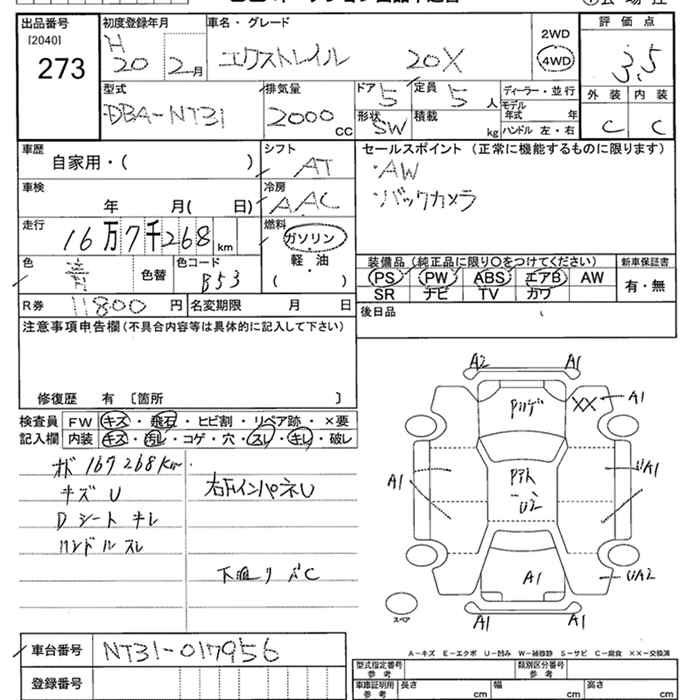 出品番号
[2040]
273
初度登録年月
H
20 2 月
車名・グレード
エクストレイル 20X
2WD
4WD
評価点
3.5
型式
DBA-NT31
排気量
2000 cc
ドア 5
定員 5 人
形状 SW
積載 kg
ディーラー・並行
モデル年式 年
ハンドル 左・右
外装 内装
C C
車歴
自家用・( )
シフト
AT
セールスポイント (正常に機能するものに限ります)
・AW
・バックカメラ
車検
年 月( 日)
冷房
AAC
走行
16万7千268 km
燃料
ガソリン
軽・油
( )
色
青 色替
色コード
B53
装備品 (純正品に限り〇をつけてください)
新車保証書
PS PW ABS エアB AW
SR ナビ TV カワ
有・無
R券 11800 円
名変期限 月 日
後日品
注意事項申告欄 (不具合内容等は具体的に記入して下さい)
修復歴 有 〔箇所 〕
検査員
記入欄
FW キズ・飛石・ヒビ割・リペア跡・×要
内装 キズ・汚れ・コゲ・穴・スレ・キレ・破レ
167268km
キズU
Dシート キレ
ハンドルスレ
A2 A1
A1
XX
A1
A1
U2
A1
UA2
A1
A1 A1
スペア
A-キズ E-エクボ U-凹み W-補修跡 S-サビ C-腐食 ××-交換済
車台番号 NT31-017956
登録番号
型式指定番号
参考
類別区分番号
参考
車庫証明用
参考
長さ cm
幅 cm
高さ cm